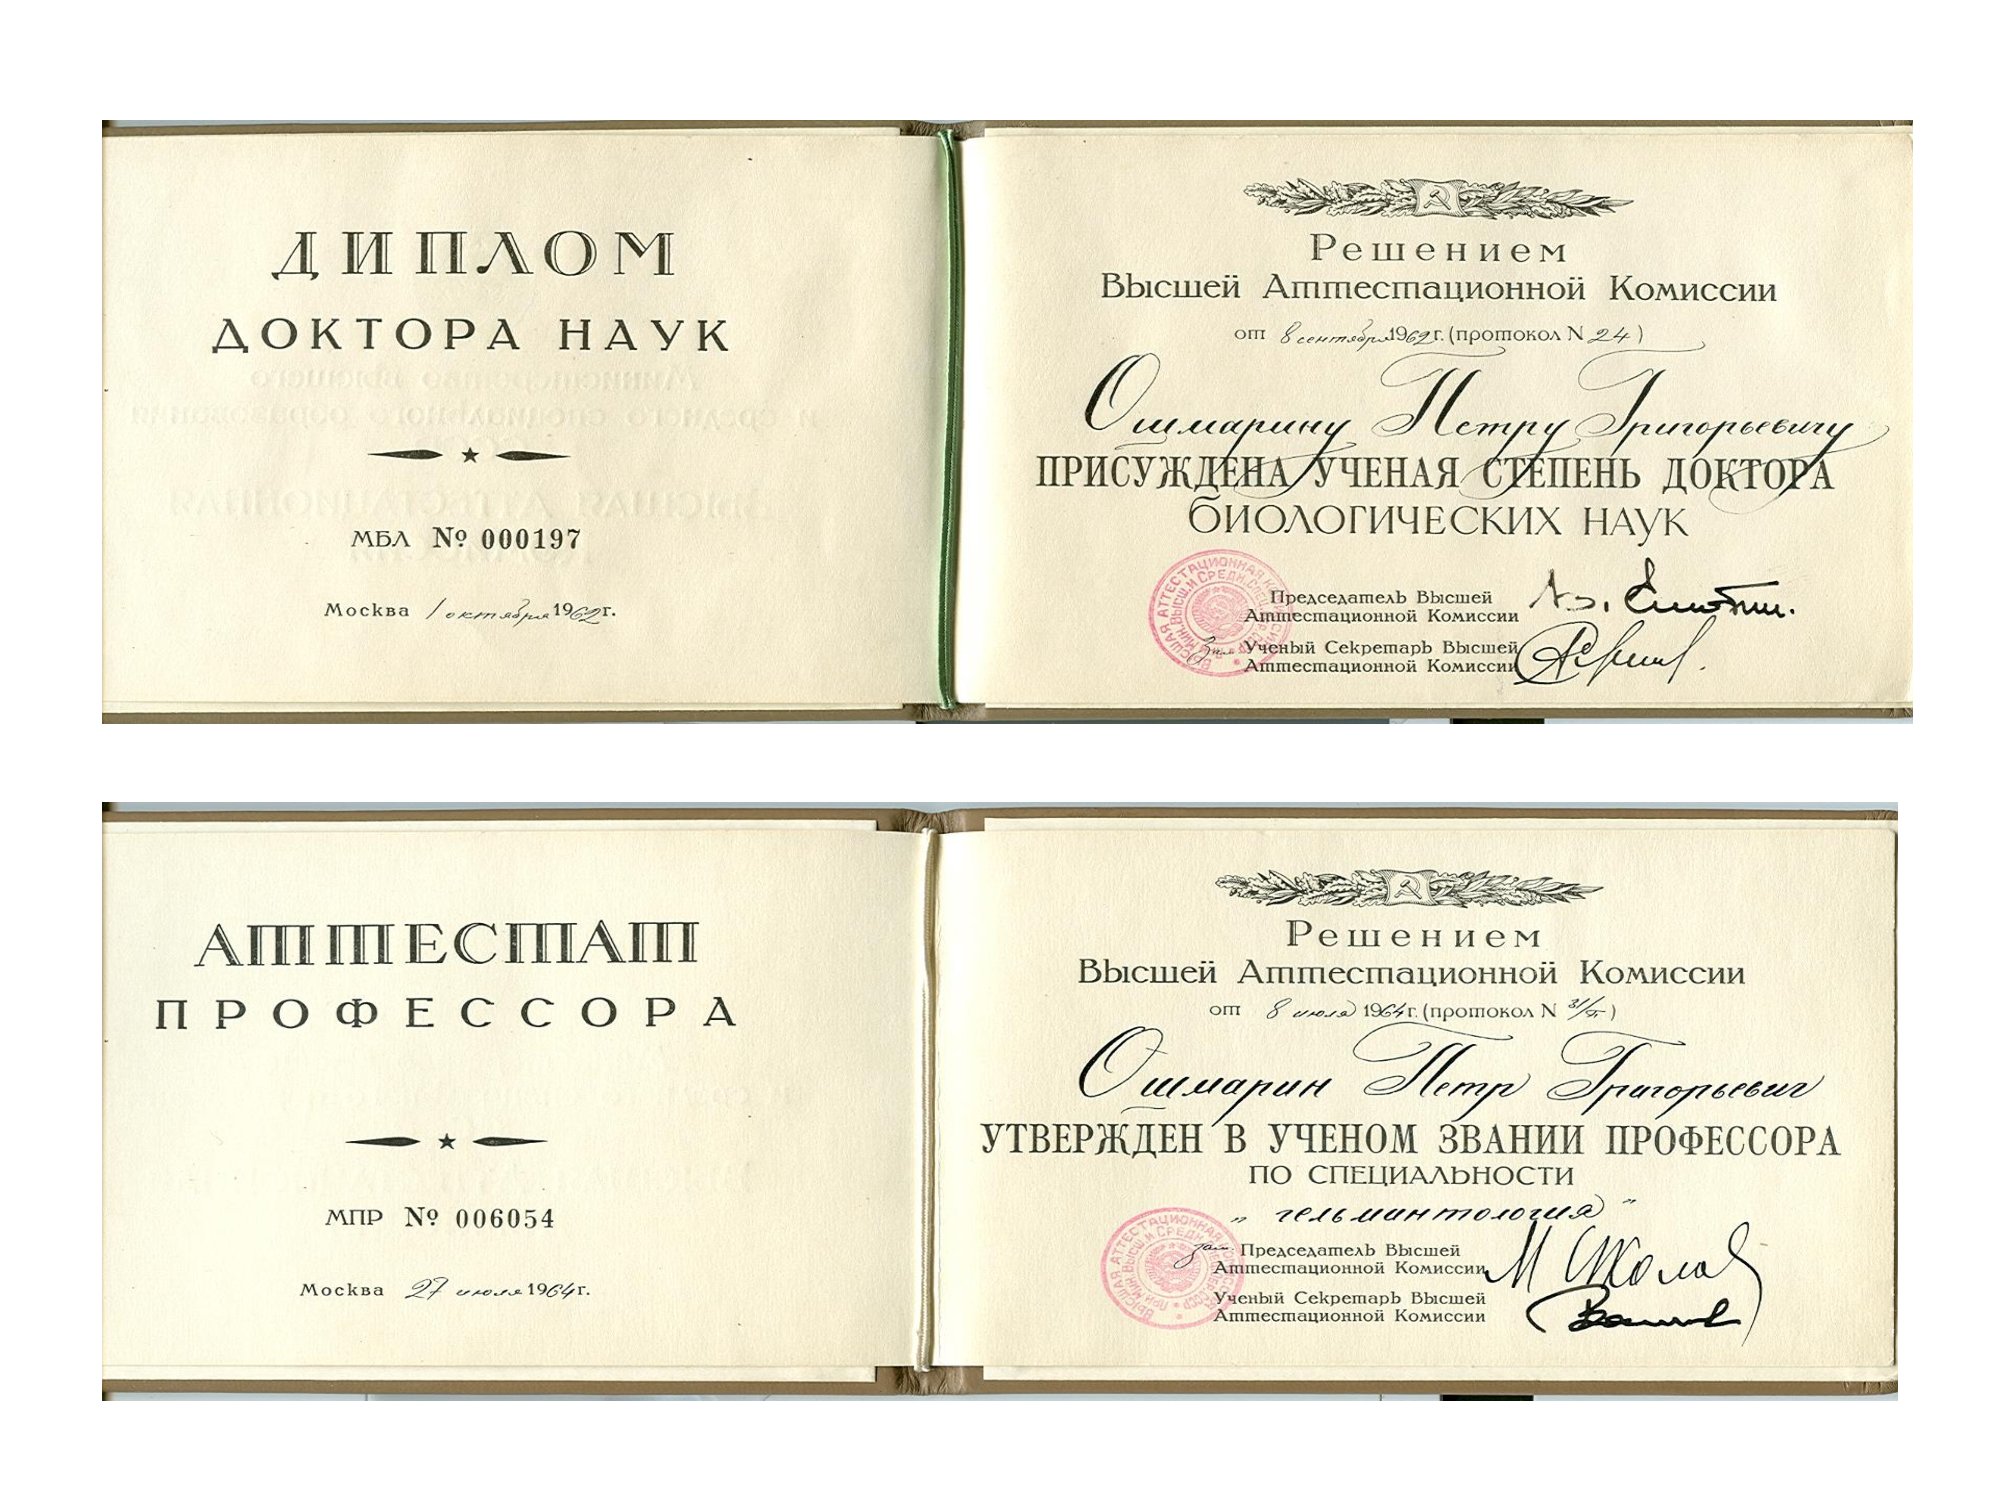 ДИПЛОМ
ДОКТОРА НАУК
МБЛ № 000197
Москва 1 октября 1962 г.
Решением
Высшей Аттестационной Комиссии
от 8 сентября 1962 г. (протокол N 24)
Ошмарину Петру Григорьевичу
ПРИСУЖДЕНА УЧЕНАЯ СТЕПЕНЬ ДОКТОРА
БИОЛОГИЧЕСКИХ НАУК
Председатель Высшей
Аттестационной Комиссии
Зам Ученый Секретарь Высшей
Аттестационной Комиссии
ВЫСШАЯ АТТЕСТАЦИОННАЯ КОМИССИЯ
АТТЕСТАТ
ПРОФЕССОРА
МПР № 006054
Москва 27 июля 1964 г.
Решением
Высшей Аттестационной Комиссии
от 8 июля 1964 г. (протокол N 31/п)
Ошмарин Петр Григорьевич
УТВЕРЖДЕН В УЧЕНОМ ЗВАНИИ ПРОФЕССОРА
ПО СПЕЦИАЛЬНОСТИ
„гельминтология"
зам. Председатель Высшей
Аттестационной Комиссии
Ученый Секретарь Высшей
Аттестационной Комиссии
ВЫСШАЯ АТТЕСТАЦИОННАЯ КОМИССИЯ